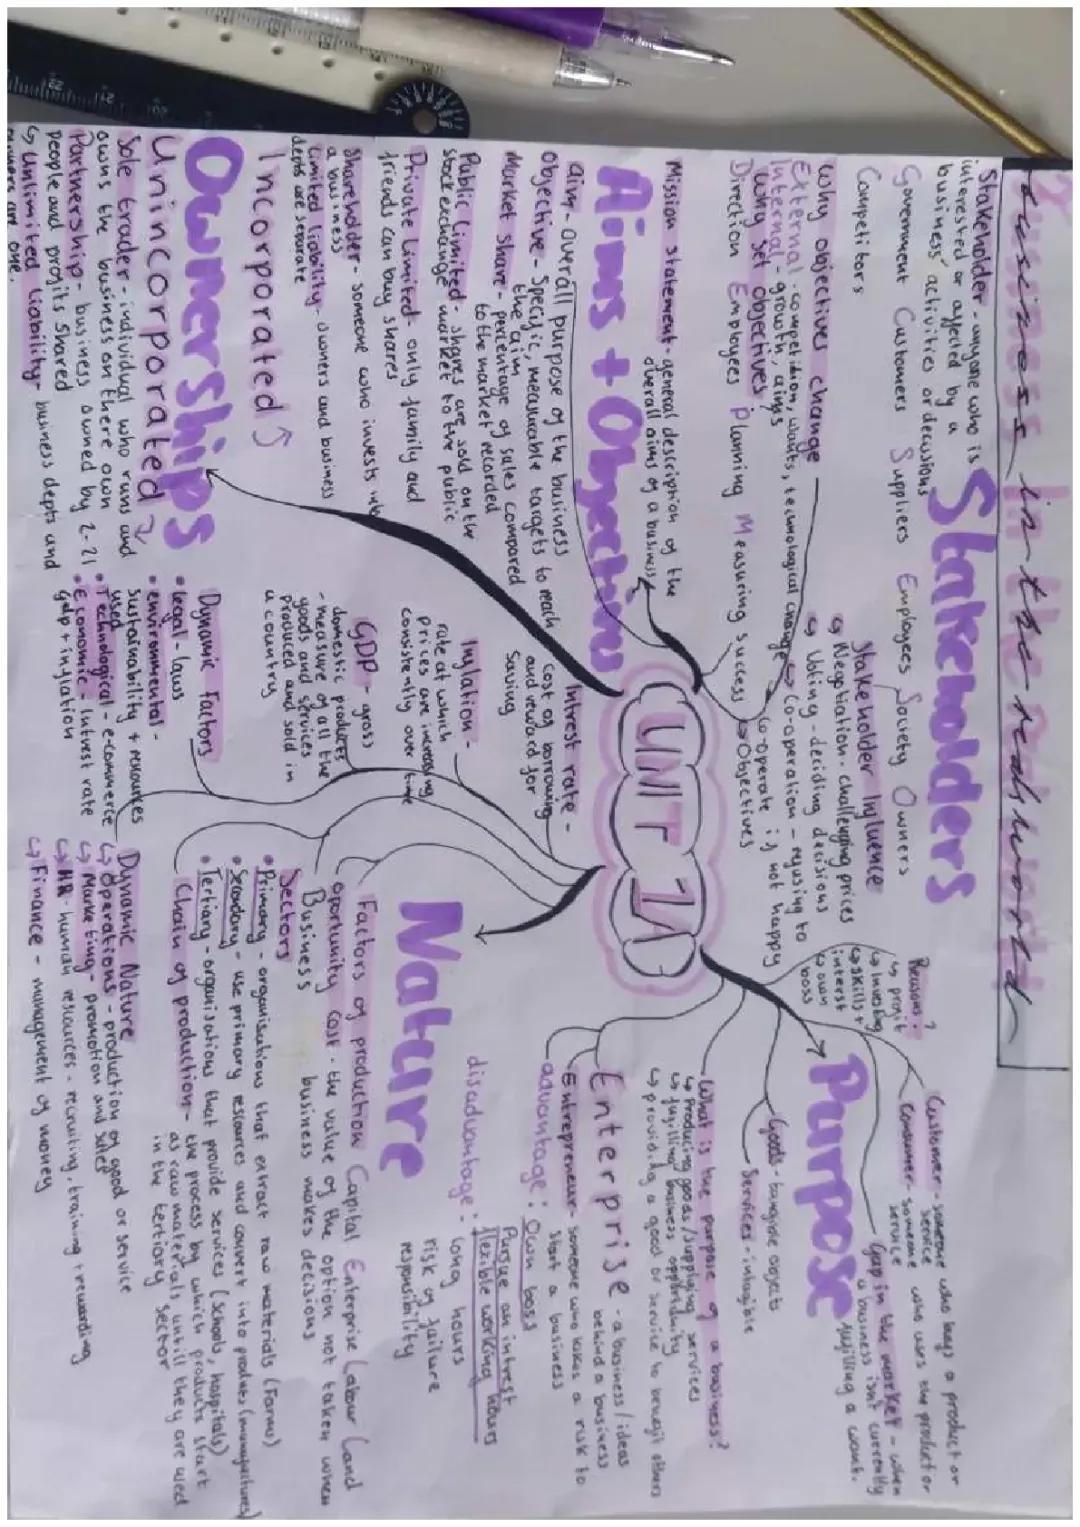 business in the real world
Stakeholders
Stakeholder - anyone who is
interested or affected by a
business' activities or decisions
Government Customers Suppliers Employees Society Owners
Competitors
Stakeholder Influence
↳ Negotiation - challenging prices
↳ Voting - deciding decisions
↳ Co-operation - refusing to
co-operate if not happy
↳ Objectives
Why objectives change
External - competition, wants, technological change
Internal - growth, aims
Why set objectives
Direction Employees Planning Measuring success
Mission statement - general description of the
overall aims of a business
Aims + Objectives
aim - overall purpose of the business
objective - Specific, measurable targets to reach
the aim
Market share - percentage of sales compared
to the market recorded
Public limited - shares are sold on the
stock exchange market to the public
Private limited - only family and
friends can buy shares
Shareholder - someone who invests into
a business
limited liability - owners and business
depts are separate
Incorporated
Ownerships
Unincorporated
Sole trader - individual who runs and
owns the business on there own
Partnership - business owned by 2-21
people and profits shared
↳ Unlimited liability - business depts and
owners are one.
UNIT 1A
Purpose
Reasons?
↳ profit
↳ investing
↳ skills +
interst
↳ own
boss
Customer - someone who buys a product or
service
Consumer - someone who uses the product or
service
Gap in the market - when
a business isnt currently
fulfilling a want.
Goods - tangible objects
Services - intangible
What is the purpose of a business?
↳ Producing goods/supplying services
↳ fulfilling business oppitunity
↳ providing a good or service to benefit others
Enterprise - a business/ideas
behind a business
Entrepreneur - someone who takes a risk to
start a business
advantage: Own boss
Pursue an intrest
flexible working hours
disadvantage - long hours
risk of failure
responsibility
Nature
Intrest rate -
cost of borrowing
and reward for
saving
Inflation -
rate at which
prices are increasing
consistently over time
GDP - gross
domestic products
- measure of all the
goods and services
produced and sold in
a country
Dynamic factors
• legal - laws
• environmental -
sustainability + resources
used
• Technological - e-commerce
• Economic - Intrest rate
gdp + inflation
Factors of production Capital Enterprise Labour Land
oportunity cost - the value of the option not taken when
Business business makes decisions
Sectors
• Primary - organisations that extract raw materials (Farms)
• Secondary - use primary resources and convert into products (manufactures)
• Tertiary - organisations that provide services (schools, hospitals)
Chain of production - the process by which products start
as raw materials untill they are used
in the tertiary sector
Dynamic Nature
↳ Operations - production of good or service
↳ Marketing - promotion and sales
↳ HR - human resources - recruiting, training + rewarding
↳ Finance - management of money